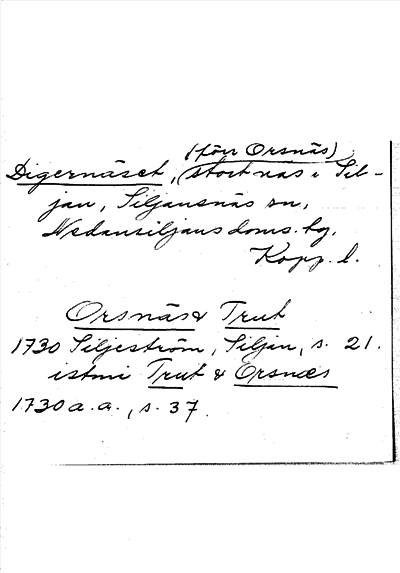 (förr Orsnäs)
Digernäset, (stort näs i Sil-
jan, Siljansnäs sn,
Nedansiljans doms. hg,
Kopp. l.
Orsnäs & Trut
1730 Siljeström, Siljan, s. 21.
istmi Trut & Orsnæs
1730 a. a., s. 37.